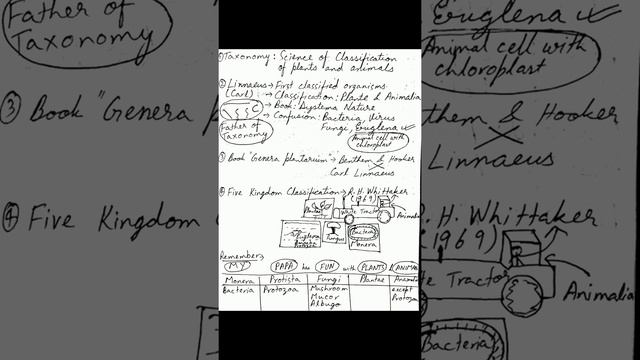 ① Taxonomy : Science of Classification
of plants and animals
② Linnaeus → First classified organisms
(Carl) → Classification: Plante & Animalia
→ Book: Systema Nature
→ Confusion: Bacteria, Virus
Fungi, Euglena
Father of
Taxonomy
Animal cell with
chloroplast
③ Book "Genera plantarium" → Benthem & Hooker
Carl Linnaeus
④ Five Kingdom Classification → R. H. Whittaker
(1969)
White Tractor
Animalia
Euglena
Fungus
Bacteria
Monera
Remember:
MY PAPA has FUN with PLANTS & ANIMAL
Monera Protista Fungi Plantae Animalia
Bacteria Protozoa Mushroom except
Mucor Protozoa
Albugo
Father of
Taxonomy
③ Book "Genera p
④ Five Kingdom C
Euglena
Animal cell with
chloroplast
them & Hooker
Linnaeus
R. H. Whittaker
(1969)
te Tractor
Animalia
Bacteria